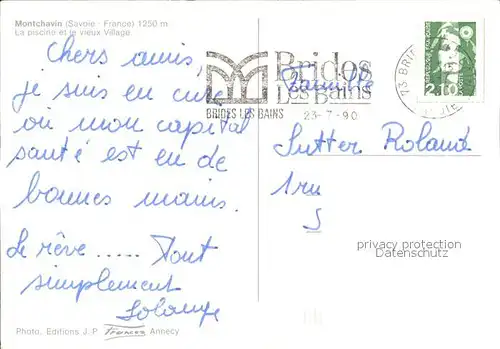 Montchavin (Savoie - France) 1250 m
La piscine et le vieux Village
Chers amis,
je suis en cure
où mon capital
santé est en de
bonnes mains.
Le rêve ..... Tout
simplement
Solange
Photo. Editions J.P. Annecy
BRIDES LES BAINS
Brides
Les Bains
23-7-90
73 BRI
2,10
Famille
Sutter Roland
1 ru
S
privacy protection
Datenschutz